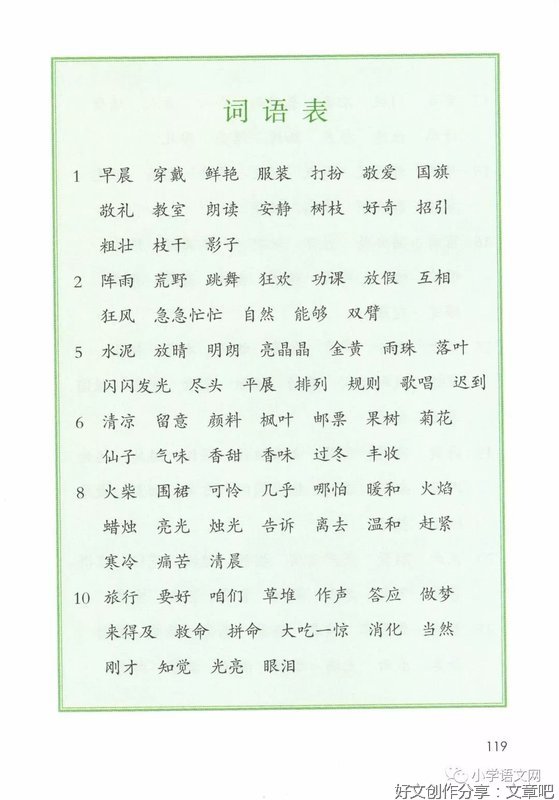 词语表
1 早晨 穿戴 鲜艳 服装 打扮 敬爱 国旗
敬礼 教室 朗读 安静 树枝 好奇 招引
粗壮 枝干 影子
2 阵雨 荒野 跳舞 狂欢 功课 放假 互相
狂风 急急忙忙 自然 能够 双臂
5 水泥 放晴 明朗 亮晶晶 金黄 雨珠 落叶
闪闪发光 尽头 平展 排列 规则 歌唱 迟到
6 清凉 留意 颜料 枫叶 邮票 果树 菊花
仙子 气味 香甜 香味 过冬 丰收
8 火柴 围裙 可怜 几乎 哪怕 暖和 火焰
蜡烛 亮光 烛光 告诉 离去 温和 赶紧
寒冷 痛苦 清晨
10 旅行 要好 咱们 草堆 作声 答应 做梦
来得及 救命 拼命 大吃一惊 消化 当然
刚才 知觉 光亮 眼泪
119
小学语文网
好文创作分享：文章吧